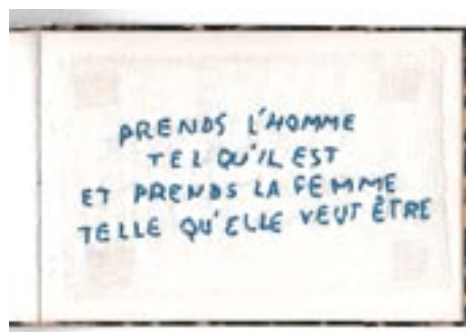 PRENDS L'HOMME
TEL QU'IL EST
ET PRENDS LA FEMME
TELLE QU'ELLE VEUT ÊTRE